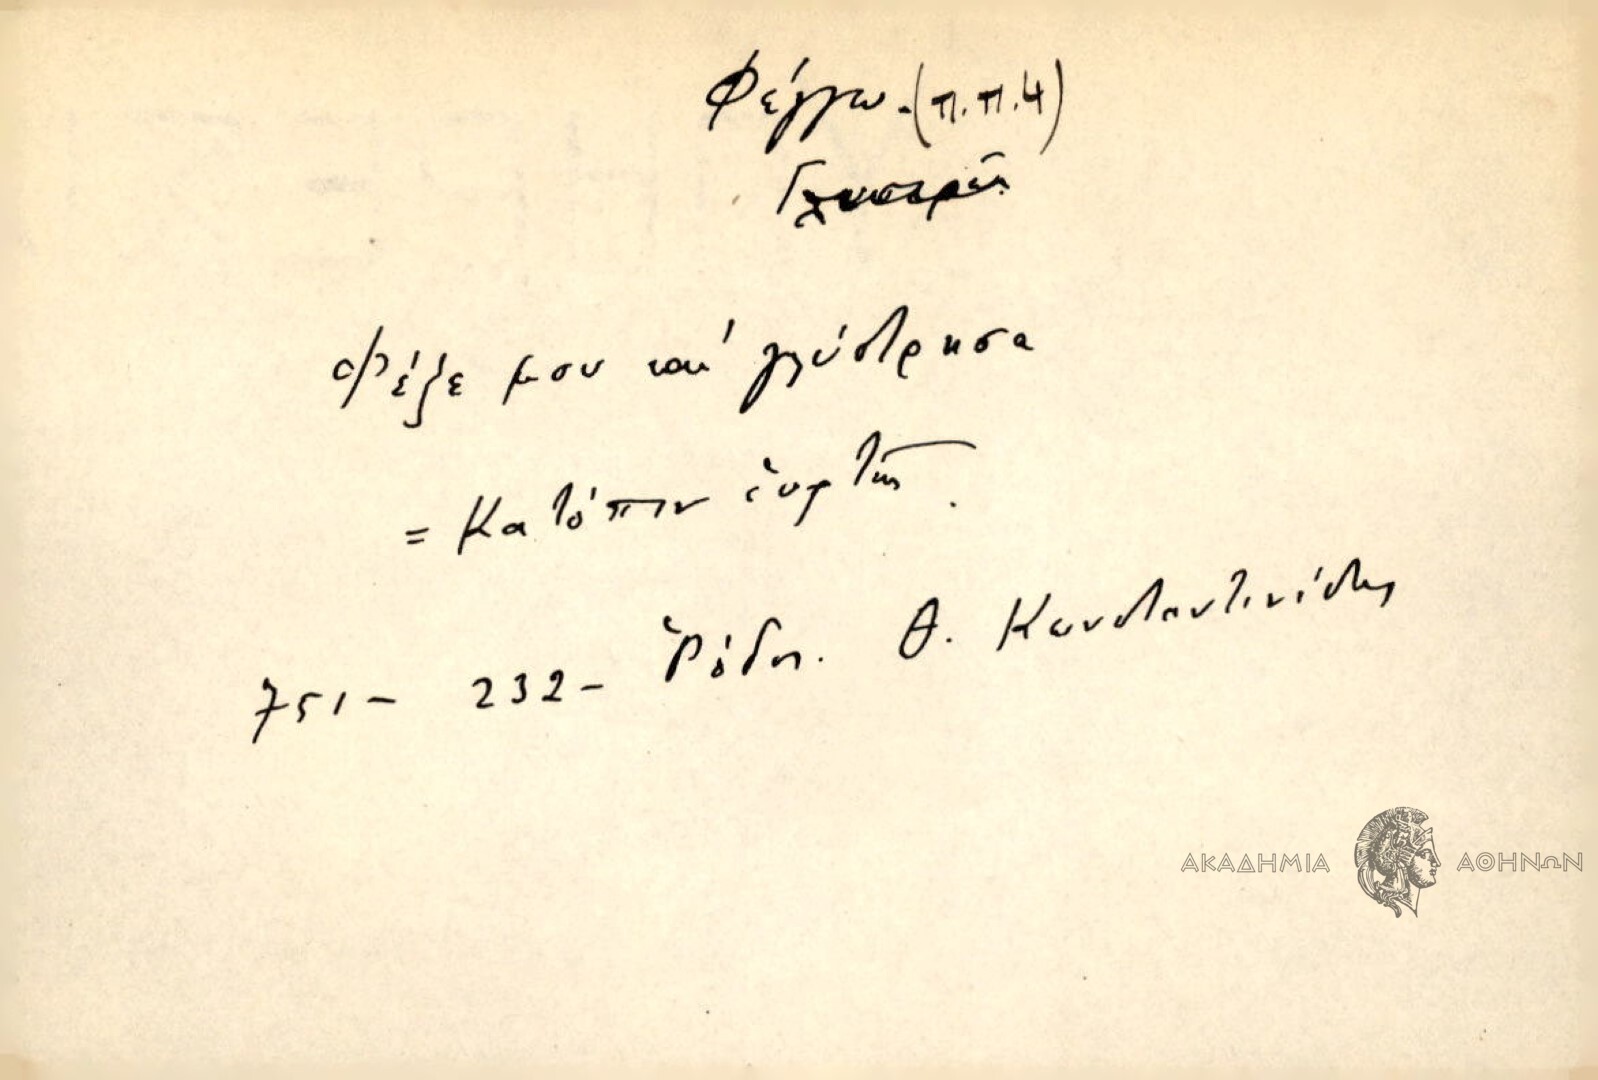 Φέγγω - (π.π.4)
Φέξε μου και' γλύστρησα
= Κατόπιν ἑορτῆς.
751 - 232 - Ρόδος. Θ. Κωνσταντινίδης
ΑΚΑΔΗΜΙΑ ΑΘΗΝΩΝ